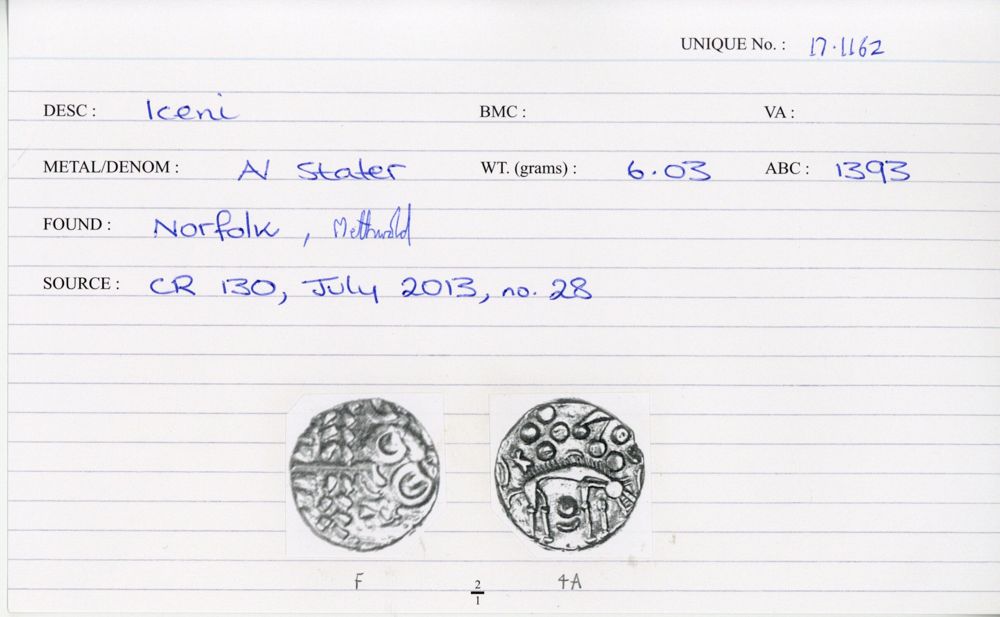 UNIQUE No. : 17.1162
DESC : Iceni BMC : VA :
METAL/DENOM : AV Stater WT. (grams) : 6.03 ABC : 1393
FOUND : Norfolk, Methwold
SOURCE : CR 130, July 2013, no. 28
F 2/1 4A